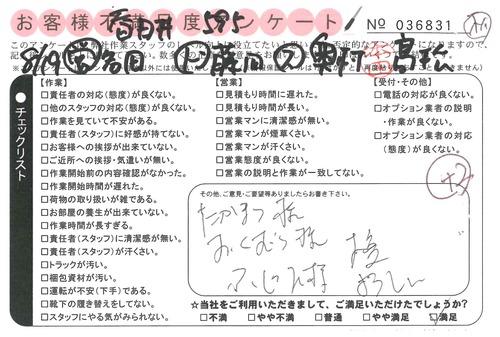 お客様不満足度アンケート
№ 036831
チェックリスト
【作業】
□責任者の対応(態度)が良くない。
□他のスタッフの対応(態度)が良くない。
□作業を見ていて不安がある。
□責任者(スタッフ)に好感が持てない。
□お客様への挨拶が出来ていない。
□ご近所への挨拶・気遣いが無い。
□作業開始前の内容確認がなかった。
□作業開始時間が遅れた。
□荷物の取り扱いが雑である。
□お部屋の養生が出来ていない。
□作業時間が長すぎる。
□責任者(スタッフ)に清潔感が無い。
□責任者(スタッフ)が汗くさい。
□トラックが汚い。
□梱包資材が汚い。
□運転が不安(下手)である。
□靴下の履き替えをしてない。
□スタッフにやる気がみられない。
【営業】
□見積もり時間に遅れた。
□見積もり時間が長い。
□営業マンに清潔感が無い。
□営業マンが煙草くさい。
□営業マンが汗くさい。
□営業態度が良くない。
□営業の説明と作業が一致してない。
【受付・その他】
□電話の対応が良くない。
□オプション業者の説明
・作業が良くない。
□オプション業者の対応
(態度)が良くない。
その他、ご意見・ご要望等ありましたらお書き下さい。
おくむら様
☆当社をご利用いただきまして、ご満足いただけたでしょうか?
□不満 □やや不満 □普通 □やや満足 □満足